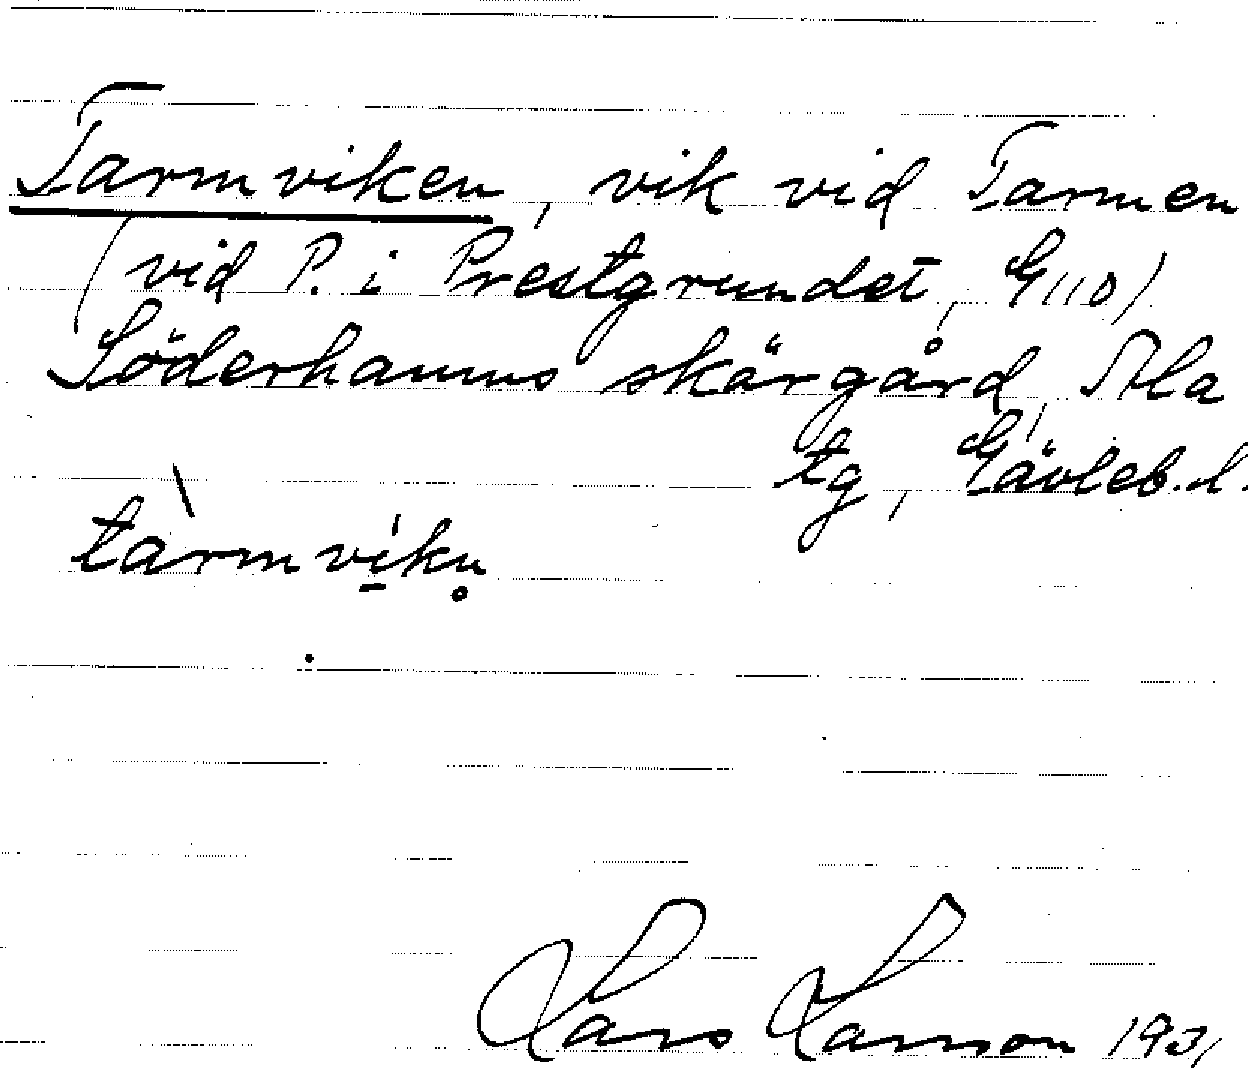 Tarmviken, vik vid Tarmen
(vid P. i Prestgrundet, G110)
Söderhamns skärgård, Ala
tg, Gävleb. l.
tàrmvíkn̥
Lars Larsson 1931